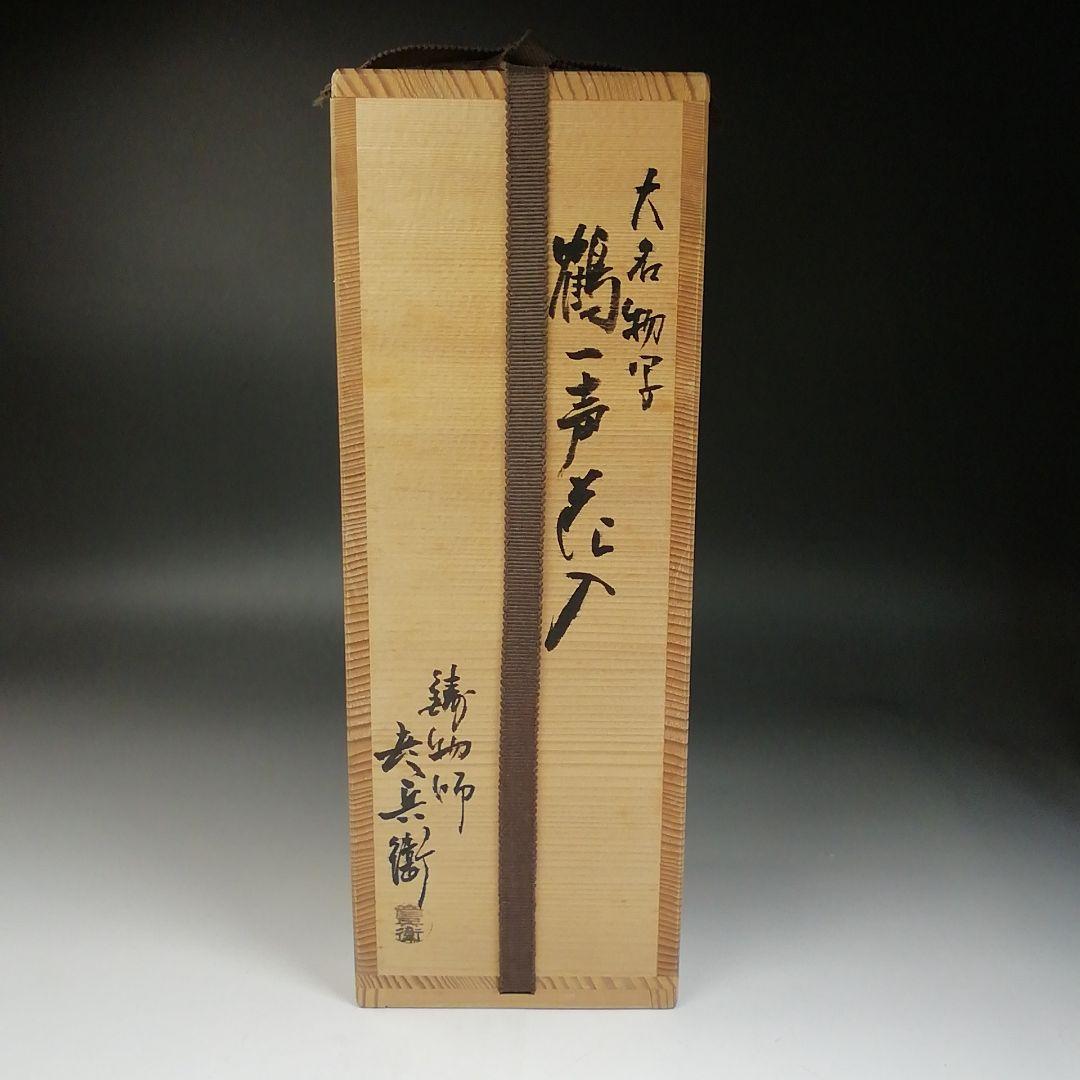 大名物写
鶴一声花入
鋳物師
兵衛